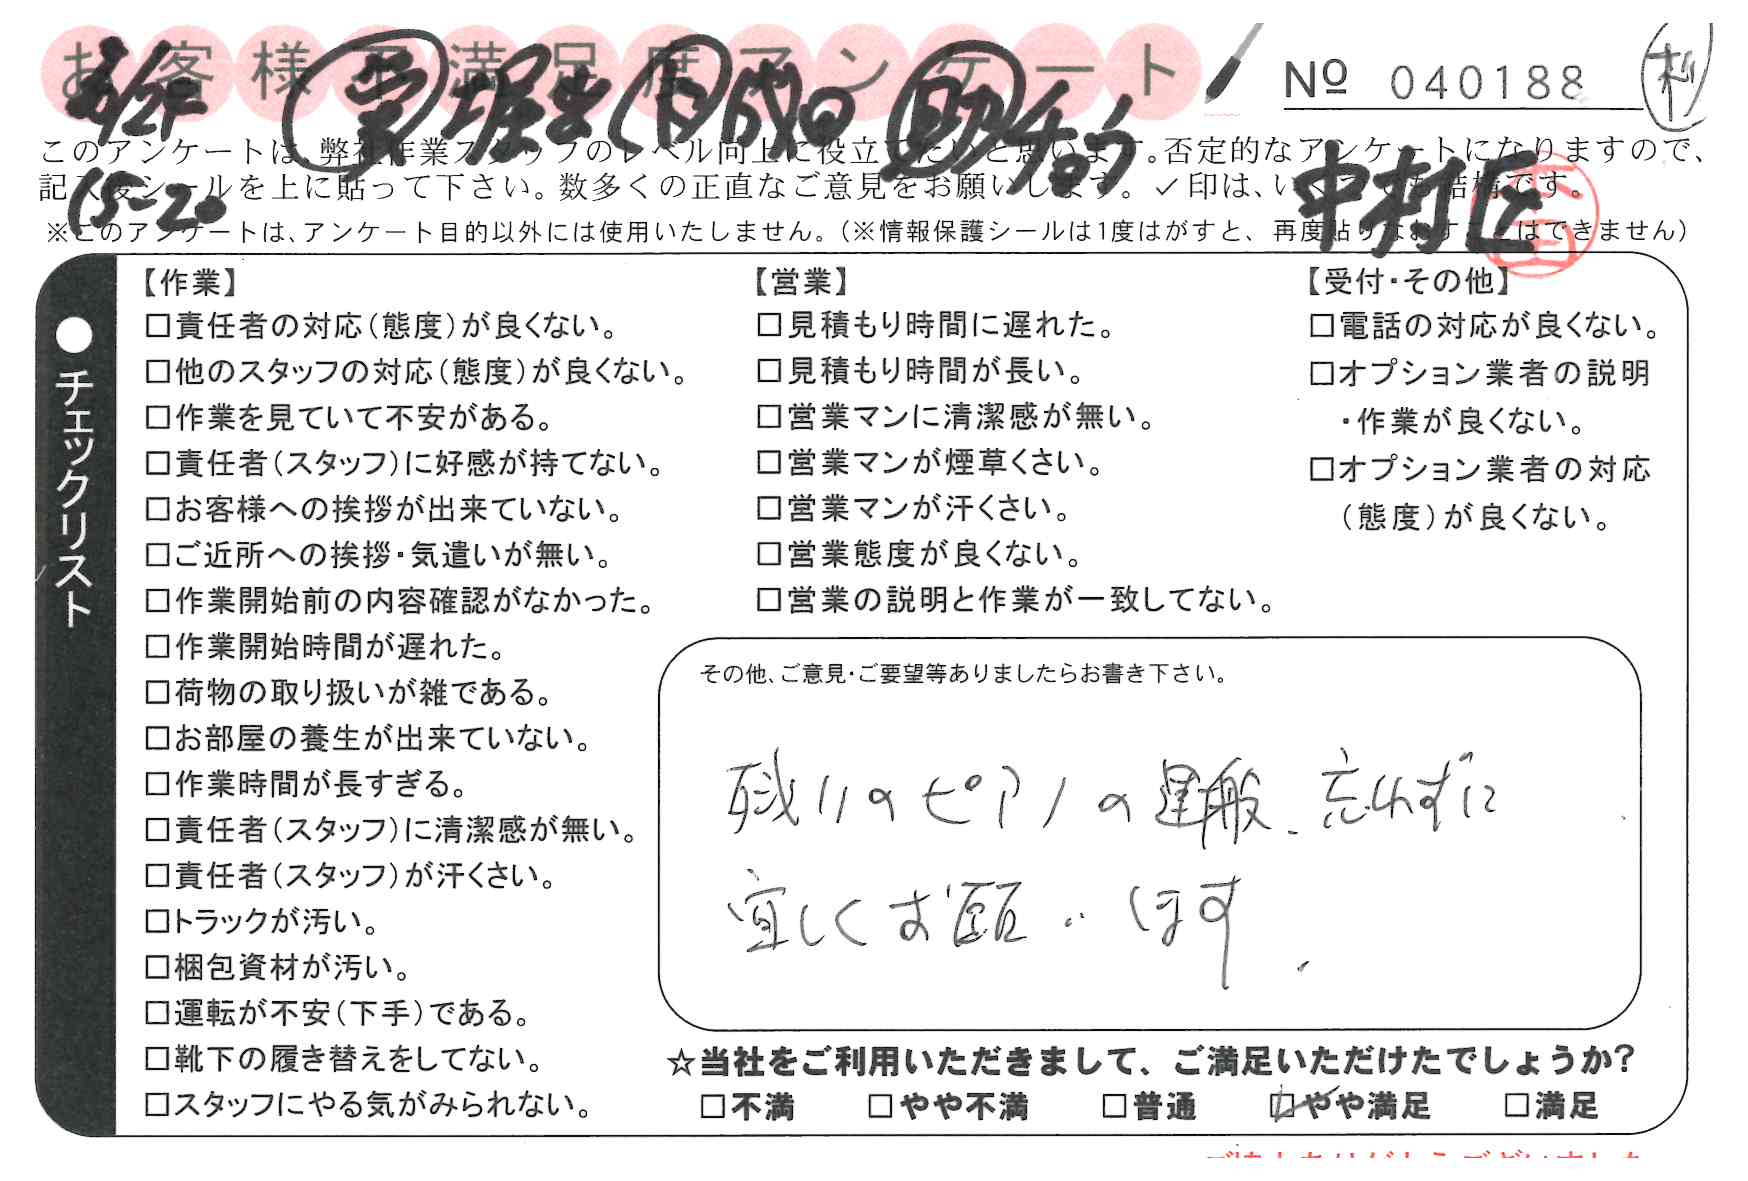 お客様不満足度アンケート
NO 040188
このアンケートは、弊社作業スタッフのレベル向上に役立てたいと思います。否定的なアンケートになりますので、
記入後シールを上に貼って下さい。数多くの正直なご意見をお願いします。✓印は、いくつでも結構です。
15-20
中村区
※このアンケートは、アンケート目的以外には使用いたしません。(※情報保護シールは1度はがすと、再度貼りなおすことはできません)
●チェックリスト
【作業】
□責任者の対応(態度)が良くない。
□他のスタッフの対応(態度)が良くない。
□作業を見ていて不安がある。
□責任者(スタッフ)に好感が持てない。
□お客様への挨拶が出来ていない。
□ご近所への挨拶・気遣いが無い。
□作業開始前の内容確認がなかった。
□作業開始時間が遅れた。
□荷物の取り扱いが雑である。
□お部屋の養生が出来ていない。
□作業時間が長すぎる。
□責任者(スタッフ)に清潔感が無い。
□責任者(スタッフ)が汗くさい。
□トラックが汚い。
□梱包資材が汚い。
□運転が不安(下手)である。
□靴下の履き替えをしてない。
□スタッフにやる気がみられない。
【営業】
□見積もり時間に遅れた。
□見積もり時間が長い。
□営業マンに清潔感が無い。
□営業マンが煙草くさい。
□営業マンが汗くさい。
□営業態度が良くない。
□営業の説明と作業が一致してない。
【受付・その他】
□電話の対応が良くない。
□オプション業者の説明
・作業が良くない。
□オプション業者の対応
(態度)が良くない。
その他、ご意見・ご要望等ありましたらお書き下さい。
残りのピアノの運搬、忘れずに
宜しくお願いします。
☆当社をご利用いただきまして、ご満足いただけたでしょうか?
□不満 □やや不満 □普通 ☑やや満足 □満足